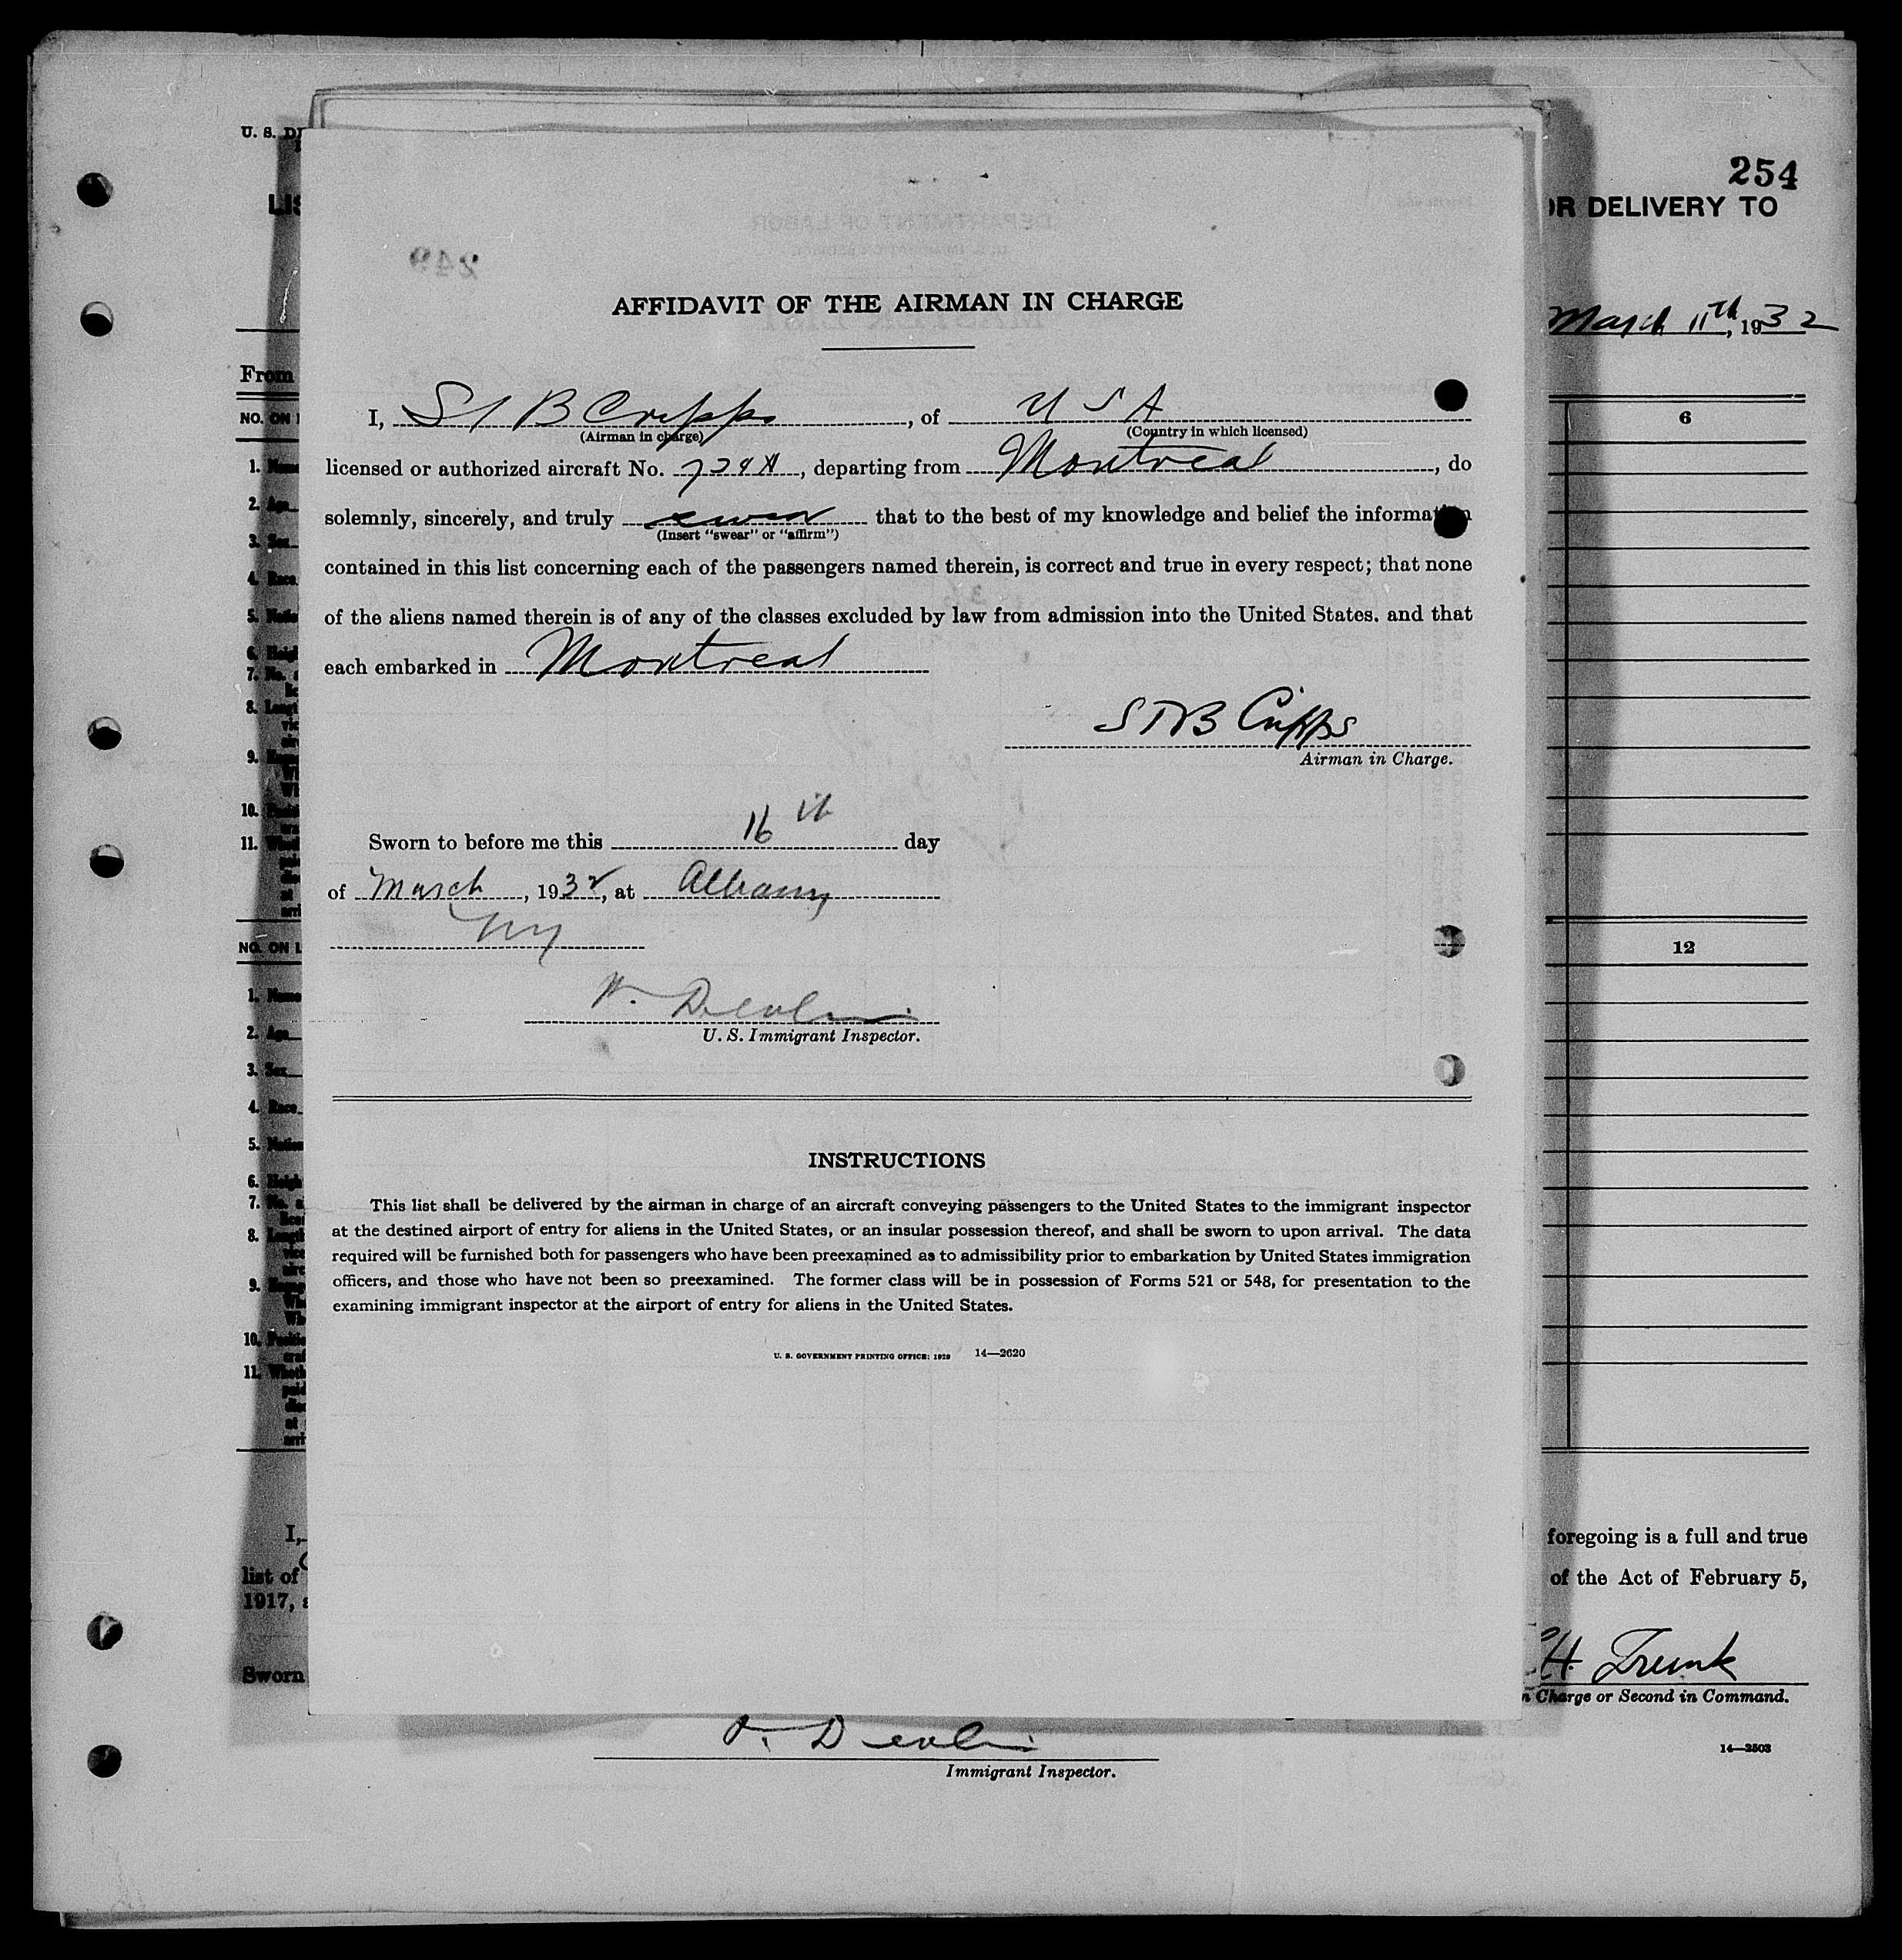 254
U. S. DE
LIS
OR DELIVERY TO
March 11th, 1932
From
AFFIDAVIT OF THE AIRMAN IN CHARGE
I, S T B Cripps, of U S A
(Airman in charge) (Country in which licensed)
licensed or authorized aircraft No. 724H, departing from Montreal, do
solemnly, sincerely, and truly swear that to the best of my knowledge and belief the information
(Insert "swear" or "affirm")
contained in this list concerning each of the passengers named therein, is correct and true in every respect; that none
of the aliens named therein is of any of the classes excluded by law from admission into the United States. and that
each embarked in Montreal
S T B Cripps
Airman in Charge.
Sworn to before me this 16th day
of March, 1932, at Albany
NY
V. Devlin
U. S. Immigrant Inspector.
INSTRUCTIONS
This list shall be delivered by the airman in charge of an aircraft conveying passengers to the United States to the immigrant inspector
at the destined airport of entry for aliens in the United States, or an insular possession thereof, and shall be sworn to upon arrival. The data
required will be furnished both for passengers who have been preexamined as to admissibility prior to embarkation by United States immigration
officers, and those who have not been so preexamined. The former class will be in possession of Forms 521 or 548, for presentation to the
examining immigrant inspector at the airport of entry for aliens in the United States.
U. S. GOVERNMENT PRINTING OFFICE: 1929 14—2620
NO. ON L
6
1. Name
2. Age
3. Sex
4. Race
5. Natio
6. Heigh
7. No. a
8. Lengt
9.
10.
11.
NO. ON L
12
1. Name
2. Age
3. Sex
4. Race
5. Nation
6. Heigh
7. No. a
8. Length
9.
10. Positio
11. Wheth
I,
foregoing is a full and true
list of
of the Act of February 5,
1917, a
H. Trunk
Sworn
n Charge or Second in Command.
V. Devlin
Immigrant Inspector.
14—2503